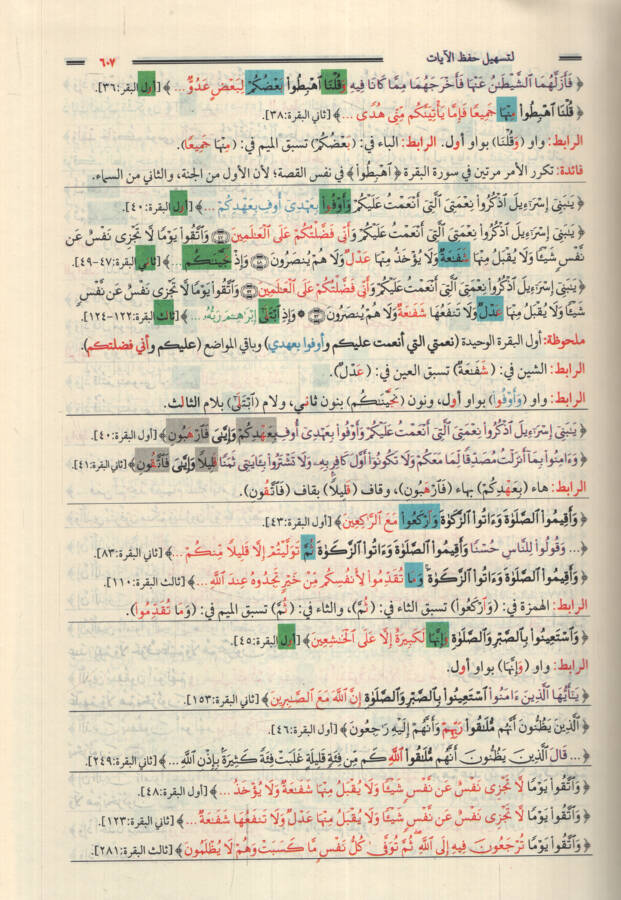 لتسهيل حفظ الآيات ٦٠٧
﴿ فَأَزَلَّهُمَا ٱلشَّيْطَٰنُ عَنْهَا فَأَخْرَجَهُمَا مِمَّا كَانَا فِيهِ وَقُلْنَا ٱهْبِطُوا۟ بَعْضُكُمْ لِبَعْضٍ عَدُوٌّ ... ﴾ [أول البقر:٣٦].
﴿ قُلْنَا ٱهْبِطُوا۟ مِنْهَا جَمِيعًا فَإِمَّا يَأْتِيَنَّكُم مِّنِّى هُدًى ... ﴾ [ثاني البقرة:٣٨].
الرابط: واو (وَقُلْنَا) بواو أول. الرابط: الباء في: (بَعْضُكُمْ) تسبق الميم في: (مِنْهَا جَمِيعًا).
فائدة: تكرر الأمر مرتين في سورة البقرة ﴿ ٱهْبِطُوا۟ ﴾ في نفس القصة؛ لأن الأول من الجنة، والثاني من السماء.
﴿ يَٰبَنِىٓ إِسْرَٰٓءِيلَ ٱذْكُرُوا۟ نِعْمَتِىَ ٱلَّتِىٓ أَنْعَمْتُ عَلَيْكُمْ وَأَوْفُوا۟ بِعَهْدِىٓ أُوفِ بِعَهْدِكُمْ ... ﴾ [أول البقرة:٤٠].
﴿ يَٰبَنِىٓ إِسْرَٰٓءِيلَ ٱذْكُرُوا۟ نِعْمَتِىَ ٱلَّتِىٓ أَنْعَمْتُ عَلَيْكُمْ وَأَنِّى فَضَّلْتُكُمْ عَلَى ٱلْعَٰلَمِينَ ۝ وَٱتَّقُوا۟ يَوْمًا لَّا تَجْزِى نَفْسٌ عَن
نَّفْسٍ شَيْـًٔا وَلَا يُقْبَلُ مِنْهَا شَفَٰعَةٌ وَلَا يُؤْخَذُ مِنْهَا عَدْلٌ وَلَا هُمْ يُنصَرُونَ ۝ وَإِذْ نَجَّيْنَٰكُم ... ﴾ [ثاني البقرة:٤٧-٤٩].
﴿ يَٰبَنِىٓ إِسْرَٰٓءِيلَ ٱذْكُرُوا۟ نِعْمَتِىَ ٱلَّتِىٓ أَنْعَمْتُ عَلَيْكُمْ وَأَنِّى فَضَّلْتُكُمْ عَلَى ٱلْعَٰلَمِينَ ۝ وَٱتَّقُوا۟ يَوْمًا لَّا تَجْزِى نَفْسٌ عَن نَّفْسٍ
شَيْـًٔا وَلَا يُقْبَلُ مِنْهَا عَدْلٌ وَلَا تَنفَعُهَا شَفَٰعَةٌ وَلَا هُمْ يُنصَرُونَ ۝ ۞ وَإِذِ ٱبْتَلَىٰٓ إِبْرَٰهِـۧمَ رَبُّهُۥ ... ﴾ [ثالث البقرة:١٢٢-١٢٤].
ملحوظة: أول البقرة الوحيدة (نعمتي التي أنعمت عليكم وأوفوا بعهدي) وباقي المواضع (عليكم وأني فضلتكم).
الرابط: الشين في: (شَفَٰعَةٌ) تسبق العين في: (عَدْلٌ).
الرابط: واو (وَأَوْفُوا۟) بواو أول، ونون (نَجَّيْنَٰكُم) بنون ثاني، ولام (ٱبْتَلَىٰٓ) بلام الثالث.
﴿ يَٰبَنِىٓ إِسْرَٰٓءِيلَ ٱذْكُرُوا۟ نِعْمَتِىَ ٱلَّتِىٓ أَنْعَمْتُ عَلَيْكُمْ وَأَوْفُوا۟ بِعَهْدِىٓ أُوفِ بِعَهْدِكُمْ وَإِيَّٰىَ فَٱرْهَبُونِ ﴾ [أول البقرة:٤٠].
﴿ وَءَامِنُوا۟ بِمَآ أَنزَلْتُ مُصَدِّقًا لِّمَا مَعَكُمْ وَلَا تَكُونُوٓا۟ أَوَّلَ كَافِرٍۭ بِهِۦ وَلَا تَشْتَرُوا۟ بِـَٔايَٰتِى ثَمَنًا قَلِيلًا وَإِيَّٰىَ فَٱتَّقُونِ ﴾ [ثاني البقرة:٤١].
الرابط: هاء (بِعَهْدِكُمْ) بهاء (فَٱرْهَبُونِ)، وقاف (قَلِيلًا) بقاف (فَٱتَّقُونِ).
﴿ وَأَقِيمُوا۟ ٱلصَّلَوٰةَ وَءَاتُوا۟ ٱلزَّكَوٰةَ وَٱرْكَعُوا۟ مَعَ ٱلرَّٰكِعِينَ ﴾ [أول البقرة:٤٣].
﴿ ... وَقُولُوا۟ لِلنَّاسِ حُسْنًا وَأَقِيمُوا۟ ٱلصَّلَوٰةَ وَءَاتُوا۟ ٱلزَّكَوٰةَ ثُمَّ تَوَلَّيْتُمْ إِلَّا قَلِيلًا مِّنكُمْ ... ﴾ [ثاني البقرة:٨٣].
﴿ وَأَقِيمُوا۟ ٱلصَّلَوٰةَ وَءَاتُوا۟ ٱلزَّكَوٰةَ ۚ وَمَا تُقَدِّمُوا۟ لِأَنفُسِكُم مِّنْ خَيْرٍ تَجِدُوهُ عِندَ ٱللَّهِ ... ﴾ [ثالث البقرة:١١٠].
الرابط: الهمزة في: (وَٱرْكَعُوا۟) تسبق الثاء في: (ثُمَّ)، والثاء في: (ثُمَّ) تسبق الميم في: (وَمَا تُقَدِّمُوا۟).
﴿ وَٱسْتَعِينُوا۟ بِٱلصَّبْرِ وَٱلصَّلَوٰةِ ۚ وَإِنَّهَا لَكَبِيرَةٌ إِلَّا عَلَى ٱلْخَٰشِعِينَ ﴾ [أول البقرة:٤٥].
الرابط: واو (وَإِنَّهَا) بواو أول.
﴿ يَٰٓأَيُّهَا ٱلَّذِينَ ءَامَنُوا۟ ٱسْتَعِينُوا۟ بِٱلصَّبْرِ وَٱلصَّلَوٰةِ ۚ إِنَّ ٱللَّهَ مَعَ ٱلصَّٰبِرِينَ ﴾ [ثاني البقرة:١٥٣].
﴿ ٱلَّذِينَ يَظُنُّونَ أَنَّهُم مُّلَٰقُوا۟ رَبِّهِمْ وَأَنَّهُمْ إِلَيْهِ رَٰجِعُونَ ﴾ [أول البقرة:٤٦].
﴿ ... قَالَ ٱلَّذِينَ يَظُنُّونَ أَنَّهُم مُّلَٰقُوا۟ ٱللَّهِ كَم مِّن فِئَةٍ قَلِيلَةٍ غَلَبَتْ فِئَةً كَثِيرَةًۢ بِإِذْنِ ٱللَّهِ ... ﴾ [ثاني البقرة:٢٤٩].
﴿ وَٱتَّقُوا۟ يَوْمًا لَّا تَجْزِى نَفْسٌ عَن نَّفْسٍ شَيْـًٔا وَلَا يُقْبَلُ مِنْهَا شَفَٰعَةٌ وَلَا يُؤْخَذُ ... ﴾ [أول البقرة:٤٨].
﴿ وَٱتَّقُوا۟ يَوْمًا لَّا تَجْزِى نَفْسٌ عَن نَّفْسٍ شَيْـًٔا وَلَا يُقْبَلُ مِنْهَا عَدْلٌ وَلَا تَنفَعُهَا شَفَٰعَةٌ ... ﴾ [ثاني البقرة:١٢٣].
﴿ وَٱتَّقُوا۟ يَوْمًا تُرْجَعُونَ فِيهِ إِلَى ٱللَّهِ ۖ ثُمَّ تُوَفَّىٰ كُلُّ نَفْسٍ مَّا كَسَبَتْ وَهُمْ لَا يُظْلَمُونَ ﴾ [ثالث البقرة:٢٨١].